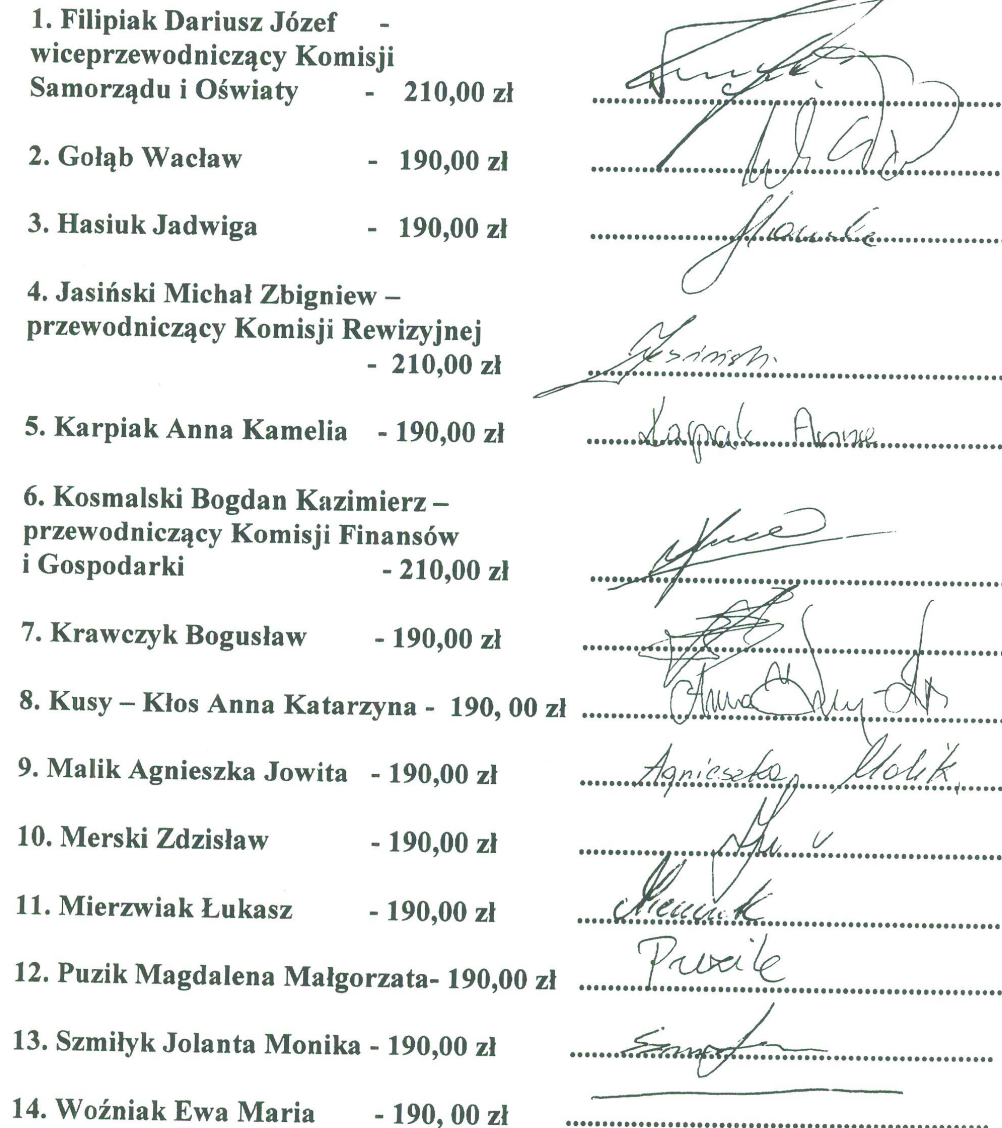 1. Filipiak Dariusz Józef -
wiceprzewodniczący Komisji
Samorządu i Oświaty - 210,00 zł
2. Gołąb Wacław - 190,00 zł
3. Hasiuk Jadwiga - 190,00 zł
4. Jasiński Michał Zbigniew –
przewodniczący Komisji Rewizyjnej
- 210,00 zł
5. Karpiak Anna Kamelia - 190,00 zł Karpiak Anna
6. Kosmalski Bogdan Kazimierz –
przewodniczący Komisji Finansów
i Gospodarki - 210,00 zł
7. Krawczyk Bogusław - 190,00 zł
8. Kusy – Kłos Anna Katarzyna - 190, 00 zł Anna
9. Malik Agnieszka Jowita - 190,00 zł Agnieszka Malik
10. Merski Zdzisław - 190,00 zł
11. Mierzwiak Łukasz - 190,00 zł
12. Puzik Magdalena Małgorzata- 190,00 zł
13. Szmiłyk Jolanta Monika - 190,00 zł
14. Woźniak Ewa Maria - 190, 00 zł